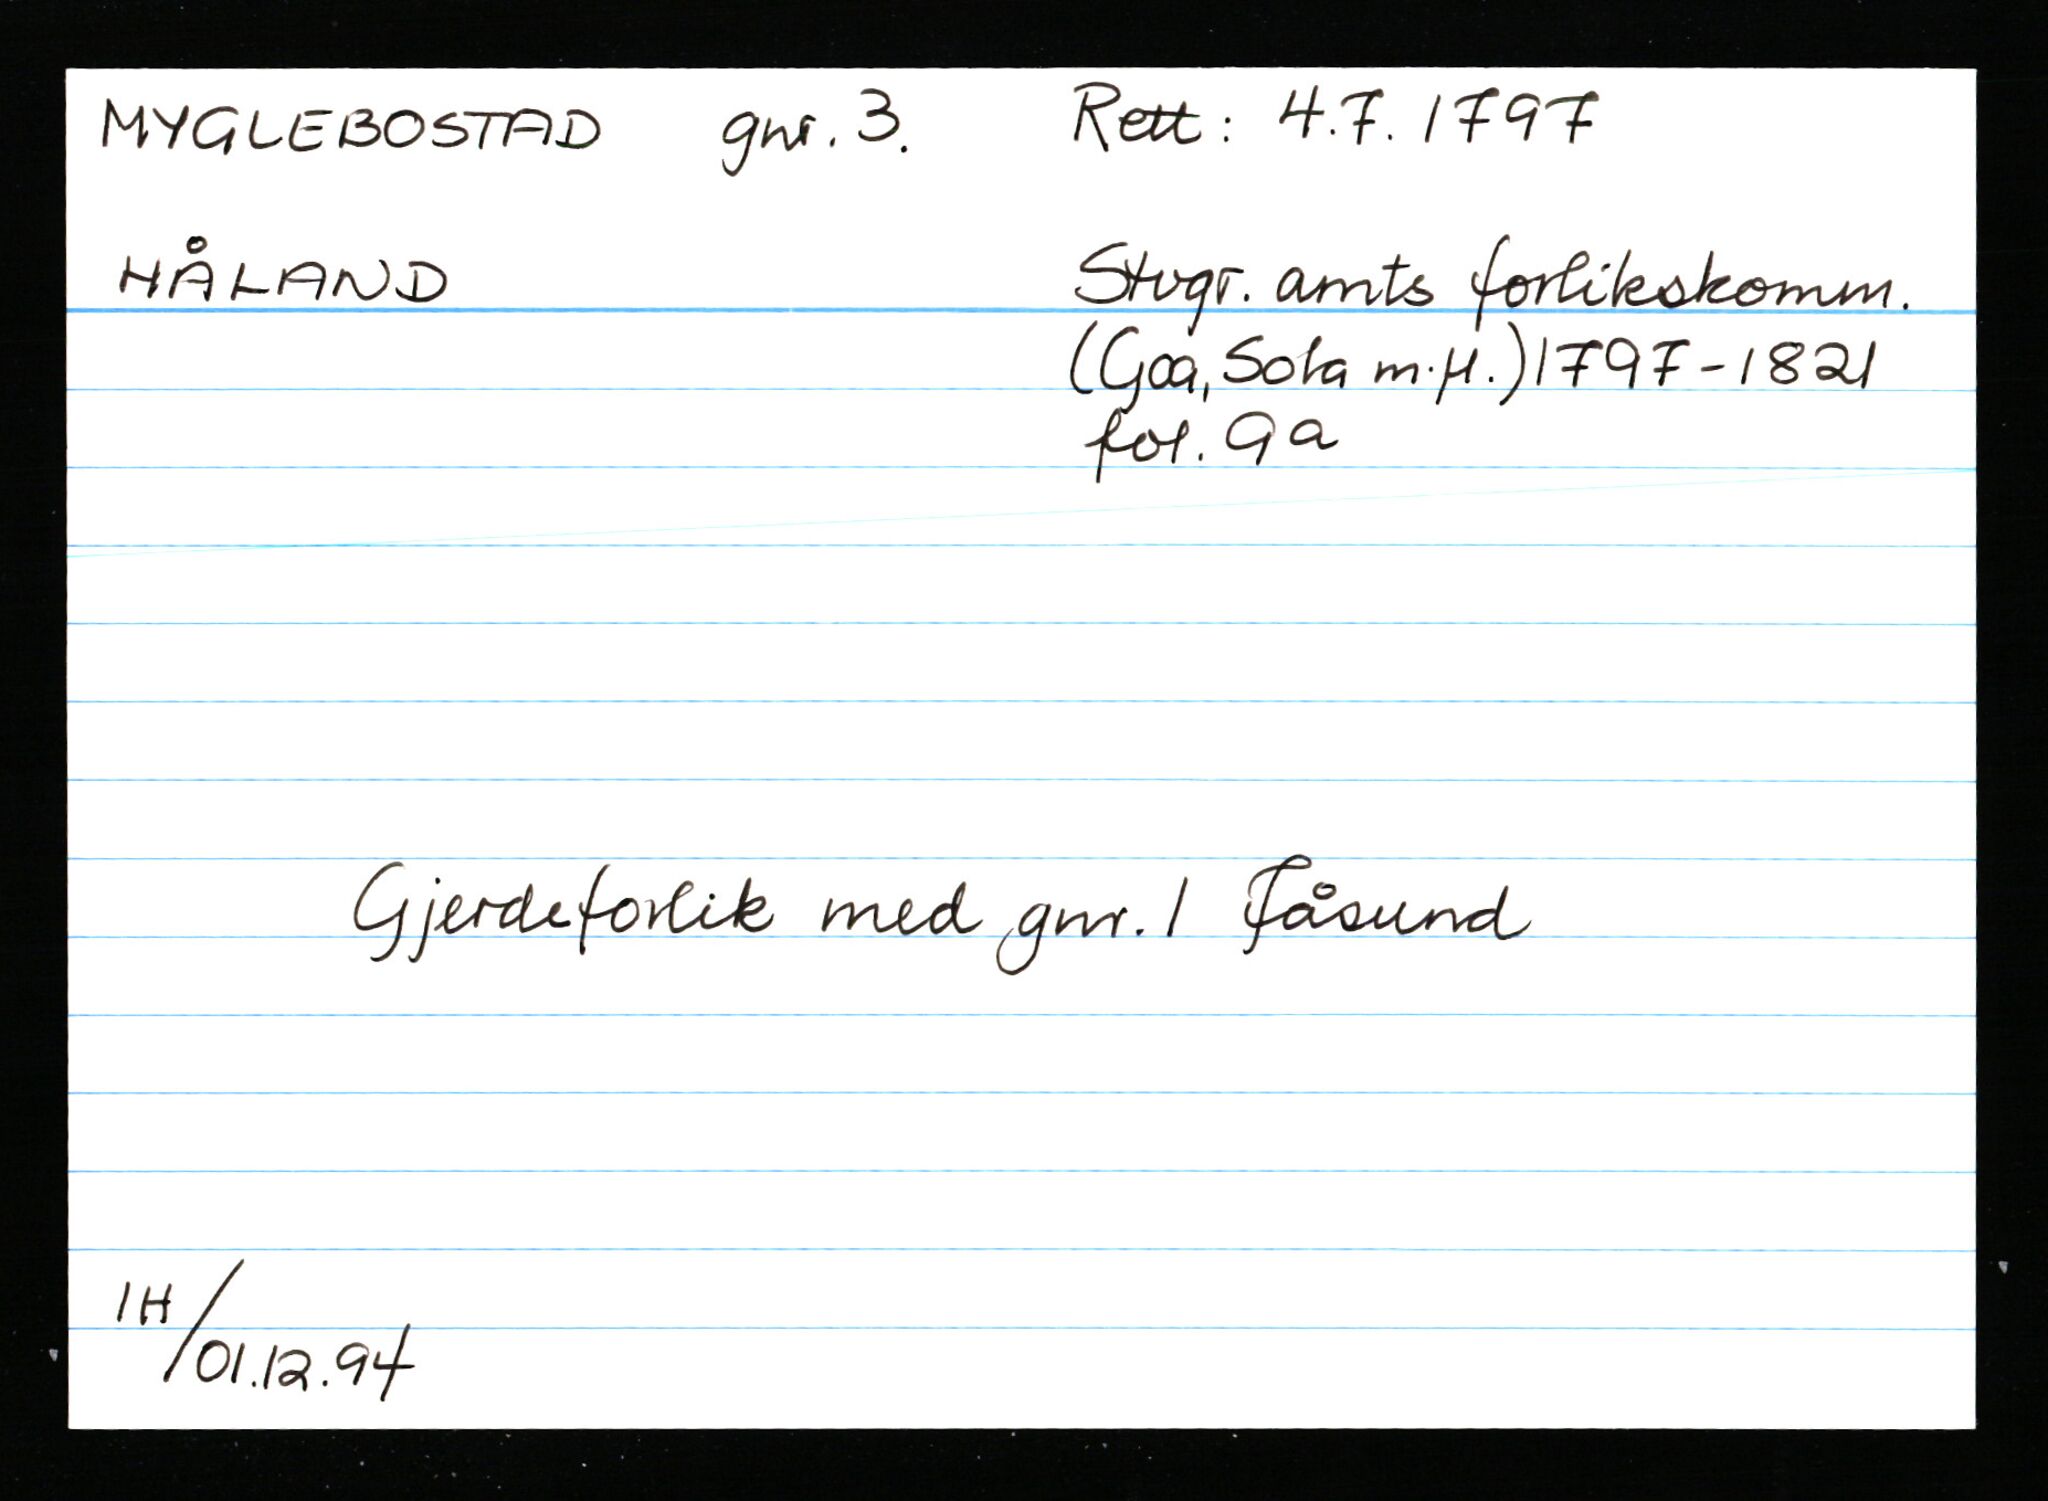 MYGLEBOSTAD gnr. 3. Rett: 4.7. 1797
HÅLAND Stvgr. amts forlikskomm.
(Goa, Sola m.fl.) 1797-1821
fol. 9a
Gjerdeforlik med gnr. 1 Tåsund
IH/01.12.94